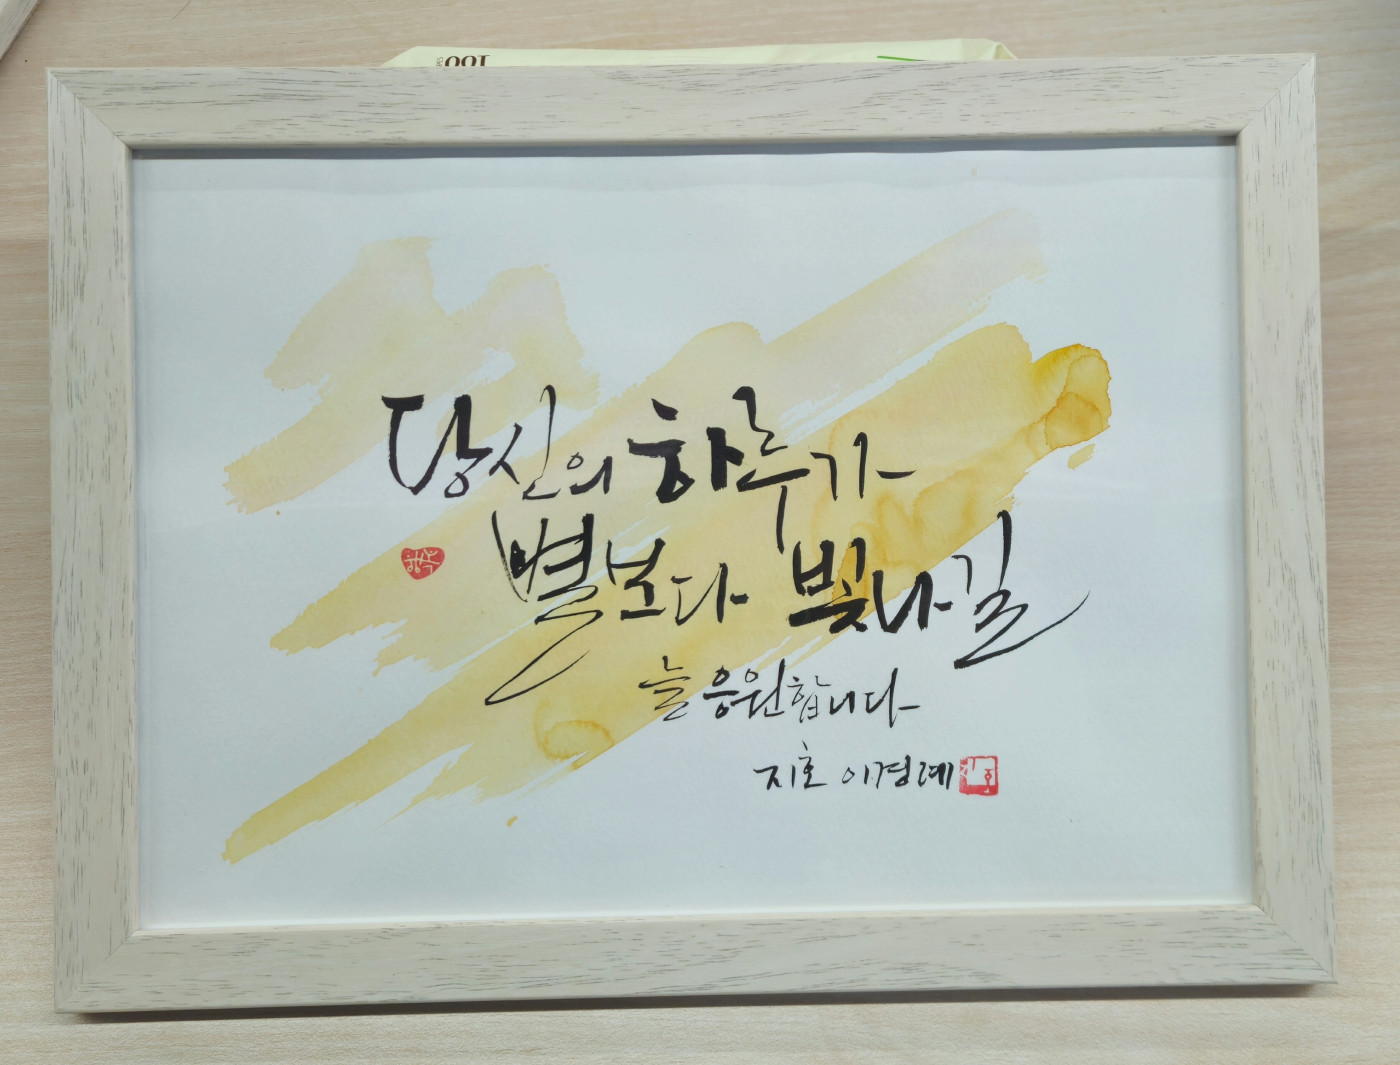 당신의 하루가
별보다 빛나길
늘 응원합니다
지호 이경례
지호
행복
100